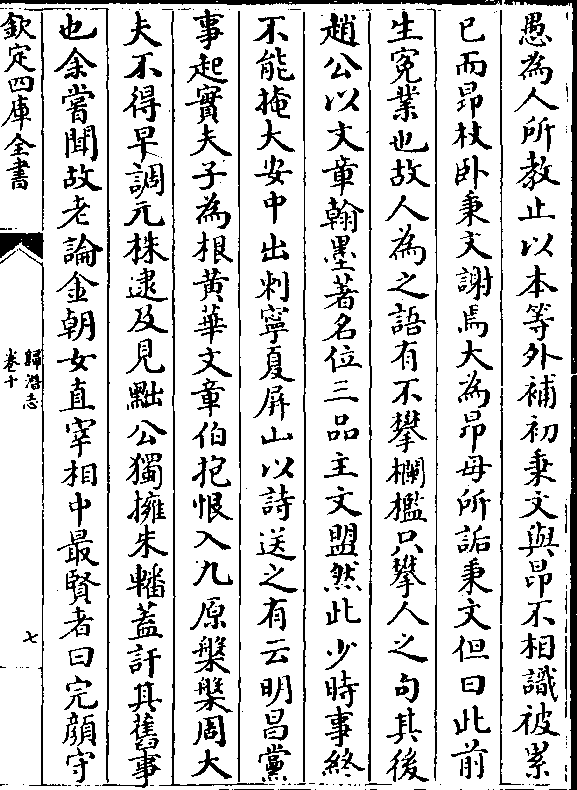 愚為人所教止以本等外補初秉文與昂不相識被累
已而昂杖卧秉文謝焉大為昂母所詬秉文但曰此前
生冤業也故人為之語有不攀欄檻只攀人之句其後
趙公以文章翰墨著名位三品主文盟然此少時事終
不能掩大安中出刺寧夏屏山以詩送之有云明昌黨
事起實夫子為根黃華文章伯抱恨入九原槃槃周大
夫不得早調元株逮及見黜公獨擁朱轓蓋訐其舊事
也余嘗聞故老論金朝女直宰相中最賢者曰完顔守
欽定四庫全書
歸潛志
卷十
七